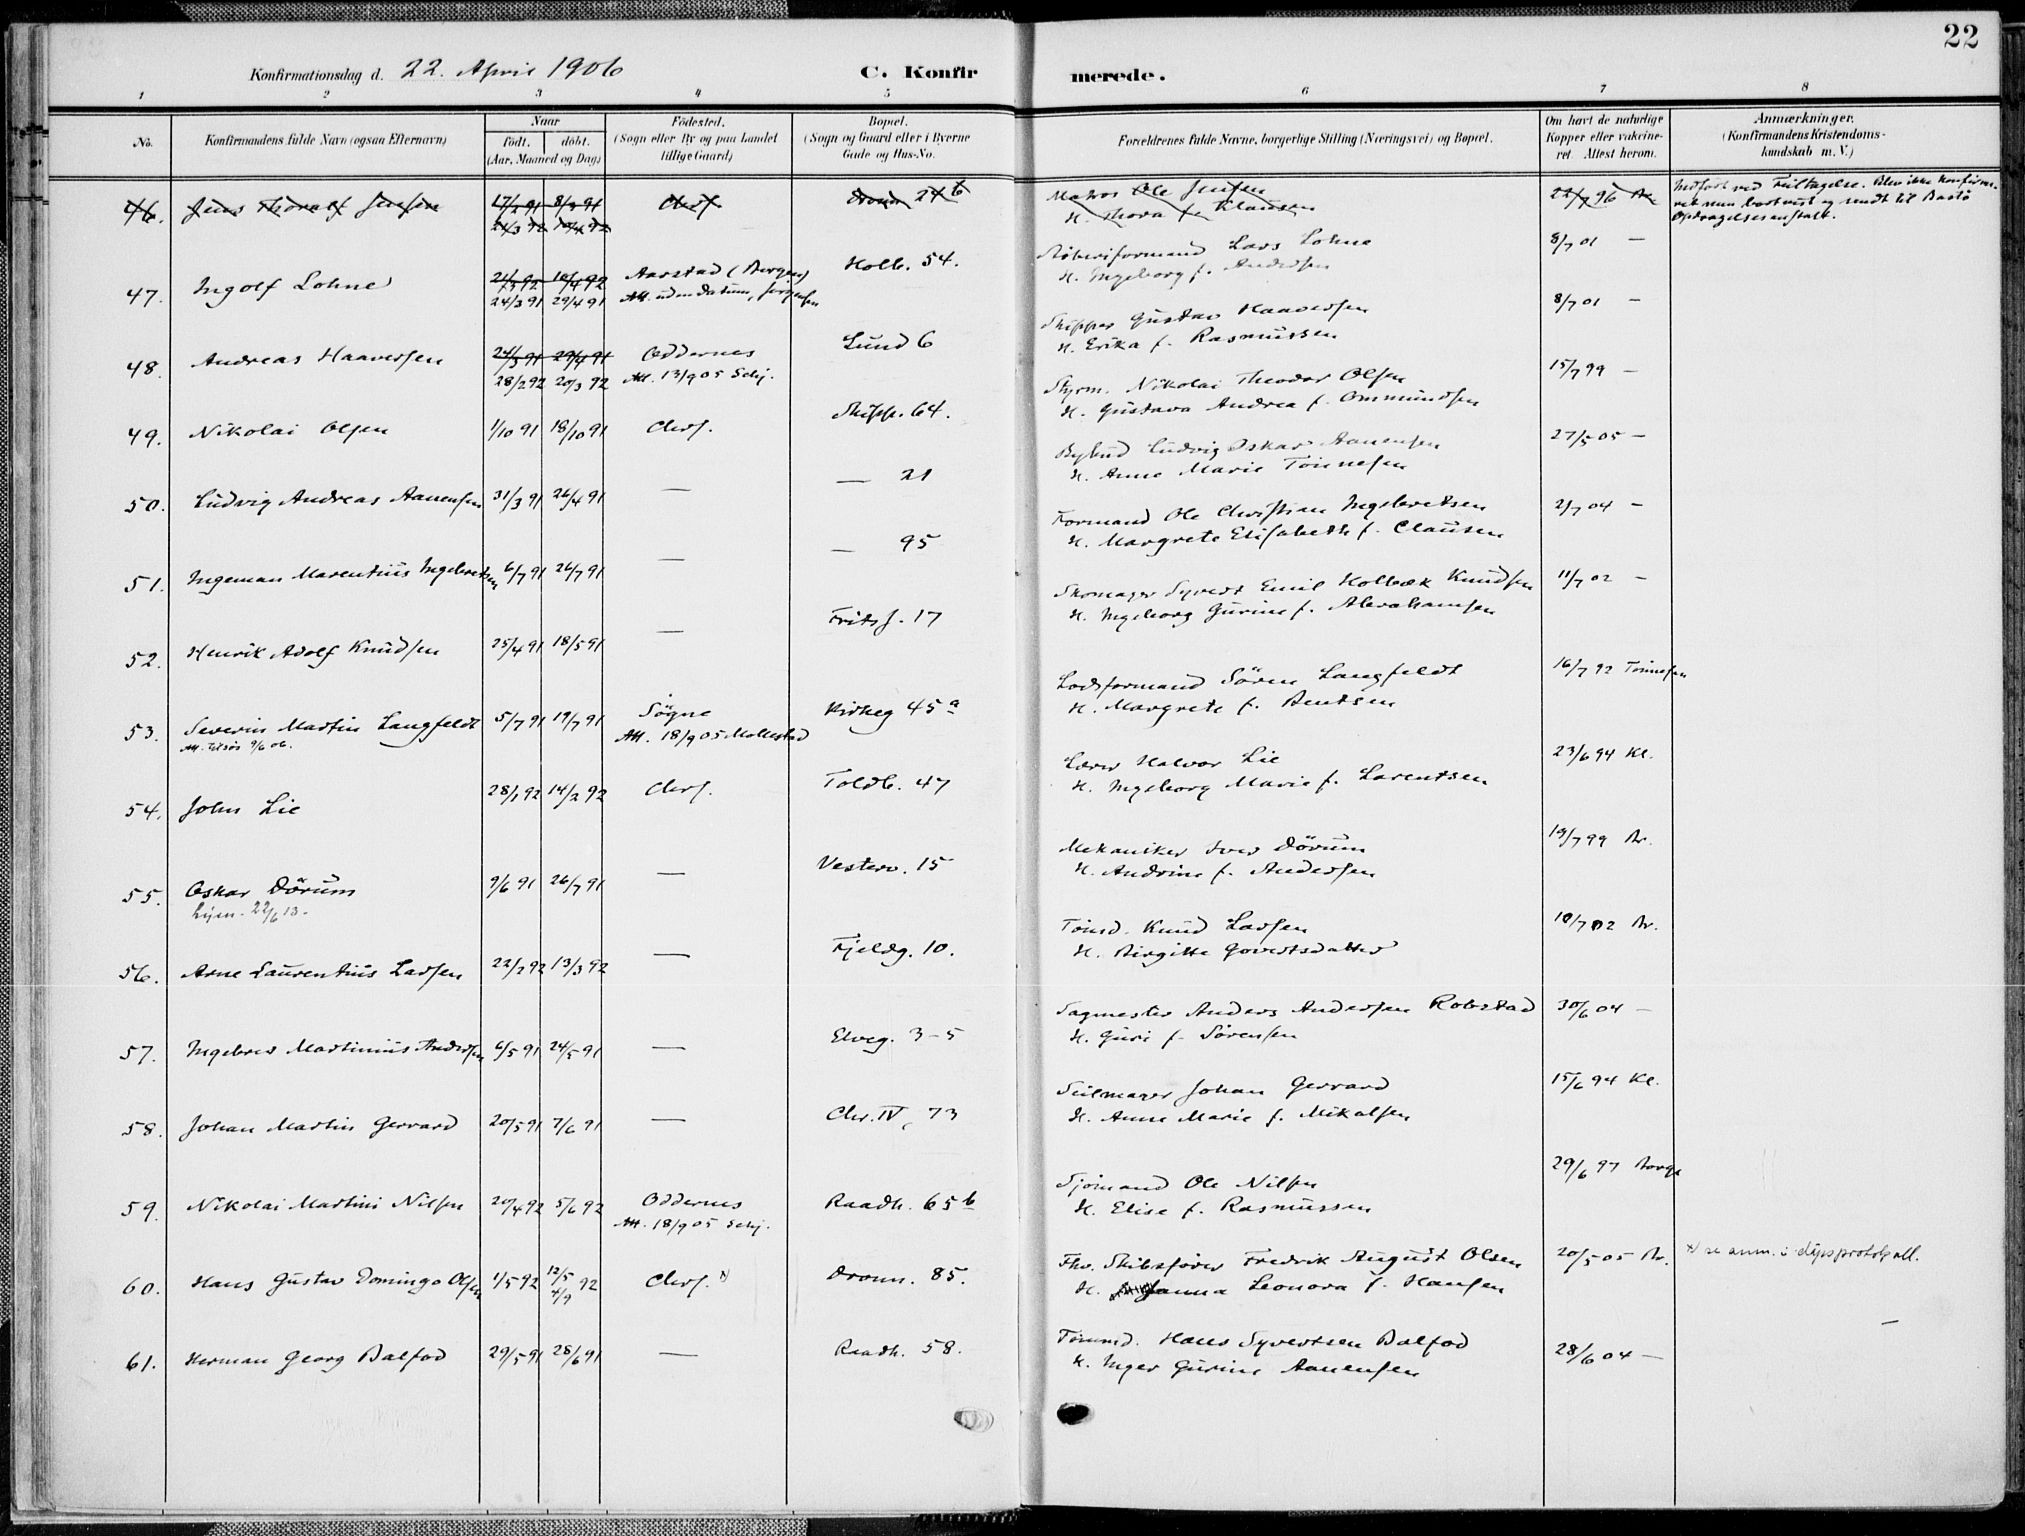 22
Konfirmationsdag d. 22. April 1906 C. Konfirmerede.
1 2 3 4 5 6 7 8
No. Konfirmandens fulde Navn (ogsaa Efternavn) Naar født. døbt. (Aar, Maaned og Dag) Fødested. (Sogn eller By og paa Landet tillige Gaard) Bopæl. (Sogn og Gaard eller i Byerne Gade og Hus-No. Forældrenes fulde Navne, borgerlige Stilling (Næringsvei) og Bopæl. Om havt de naturlige Kopper eller vakcineret. Attest herom. Anmærkninger. (Konfirmandens Kristendomskundskab m. V.)
46. Jens Thoralf Jensen 17/2 91 8/3 91 Chrs. Dronn. 24 b Matros Ole Jensen 22/7 96 Br.
24/3 92 10/4 92 H. Thora f. Klausen
Indført ved Feiltagelse. Blev ikke konfirm.
men bortvist og sendt til Bastø
Opdragelsesanstalt.
47. Ingolf Lohne 24/3 92 10/4 92 Aarstad (Bergen) Holb. 54. Lars Lohne 8/7 01 —
24/3 91 29/4 91 Att. uden Datum, Jørgensen H. Ingeborg f. Andersen
48. Andreas Haaversen 24/3 91 29/4 91 Oddernes Lund 6 Skipper Gustav Haaversen 8/7 01 —
28/2 92 20/3 92 Att. 13/9 05 Schj. H. Erika f. Rasmussen
49. Nikolai Olsen 1/10 91 18/10 91 Chrs. Skipp. 64. Styrm. Nikolai Theodor Olsen 15/7 99 —
H. Gustava Andrea f. Ommundsen
50. Ludvig Andreas Aanensen 31/3 91 26/4 91 — — 21 Bybud Ludvig Oskar Aanensen 27/5 05 —
H. Anne Marie Tønnesen
51. Ingeman Marentius Ingebretsen 6/7 91 26/7 91 — — 95 Formand Ole Christian Ingebretsen 2/7 04 —
H. Margrete Elisabeth f. Clausen
52. Henrik Adolf Knudsen 25/4 91 18/5 91 — Frits J. 17 Skomager Syvert Emil Holbæk Knudsen 11/7 02 —
H. Ingeborg Gurine f. Abrahamsen
53. Severin Martin Langfeldt 5/7 91 19/7 91 Søgne Kirkeg 45 a Lodsformand Sören Langfeldt 16/7 92 Tönnesen
Att. tilsøs 9/6 06. Att. 18/9 05 Mollestad H. Margrete f. Bentsen
54. John Lie 28/1 92 14/2 92 Chrs. Toldb. 47 Lærer Halvor Lie 23/6 94 Kl.
H. Ingeborg Marie f. Larentsen
55. Oskar Dörum 9/6 91 26/7 91 — Vesterv. 15 Mekaniker Iver Dörum 19/7 99 Br.
22/6 13. H. Andrine f. Andersen
56. Arne Laurentius Larsen 22/2 92 13/3 92 — Fjeldg. 10. Tömd. Knud Larsen 10/7 02 Br.
H. Birgitte Govertsdatter
57. Ingebret Martinius Andersen 6/5 91 24/5 91 — Elveg. 3-5 Sagmester Anders Andersen Robstad 30/6 04 —
H. Guri f. Sörensen
58. Johan Martin Gerrard 20/5 91 7/6 91 — Chr. IV, 73 Seilmager Johan Gerrard 15/6 94 Kl.
H. Anne Marie f. Mikalsen
59. Nikolai Martini Nilsen 20/4 92 5/6 92 Oddernes Raadh. 65 b Sjömand Ole Nilsen 29/6 97 Borge
Att. 18/9 05 Schj. H. Elise f. Rasmussen
60. Hans Gustav Domingo Olsen 1/5 92 12/5 4/9 92 Chrs. x) Dronn. 85. Fhv. Skibsfører Fredrik August Olsen 20/5 05 Br. x) se anm. i dåpsprotokoll.
H. Janna Leonora f. Hansen
61. Herman Georg Balfod 29/5 91 28/6 91 — Raadh. 58. Tömmd. Hans Syvertsen Balfod 28/6 04 —
H. Inger Gurine Aanensen